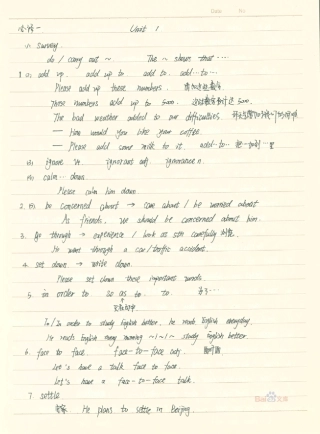 Date No.
必修一 Unit 1
(1) survey
do / carry out ~ The ~ shows that ...
1. (1) add up add up to add to add...to...
Please add up these numbers. 请加这些数字
These numbers add up to 5000. 这些数字合计达 5000.
The bad weather added to our difficulties.
— How would you like your coffee
— Please add some milk to it. add...to...
(3) ignore v. ignorant adj. ignorance n.
(4) calm ... down
Please calm him down
2. (5) be concerned about → care about / be worried about
As friends, we should be concerned about him
3. go through → experience / look at sth carefully
He went through a car/traffic accident.
4. set down → write down.
Please set down these important words.
5. in order to so as to to 为了...
To / In order to study English better, he reads English everyday.
He reads English every morning ~ / ~ / ~ study English better.
6. face to face. face-to-face adj.
Let's have a talk face to face
Let's have a face-to-face talk.
7. settle
定居 He plans to settle in Beijing.